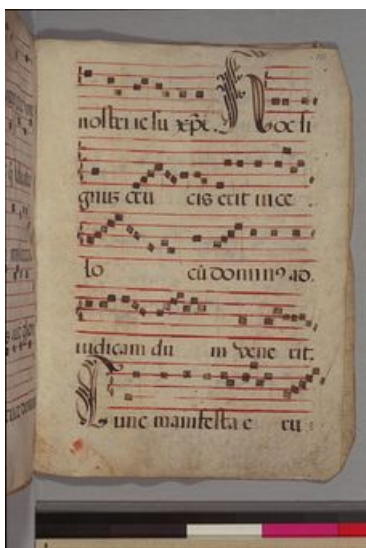 nostri iesu xp̄i. Hoc si
gnus cru cis erit in ce
lo cū dominꝰ ad
iudicandu m vene rit.
Tunc manifesta e ru